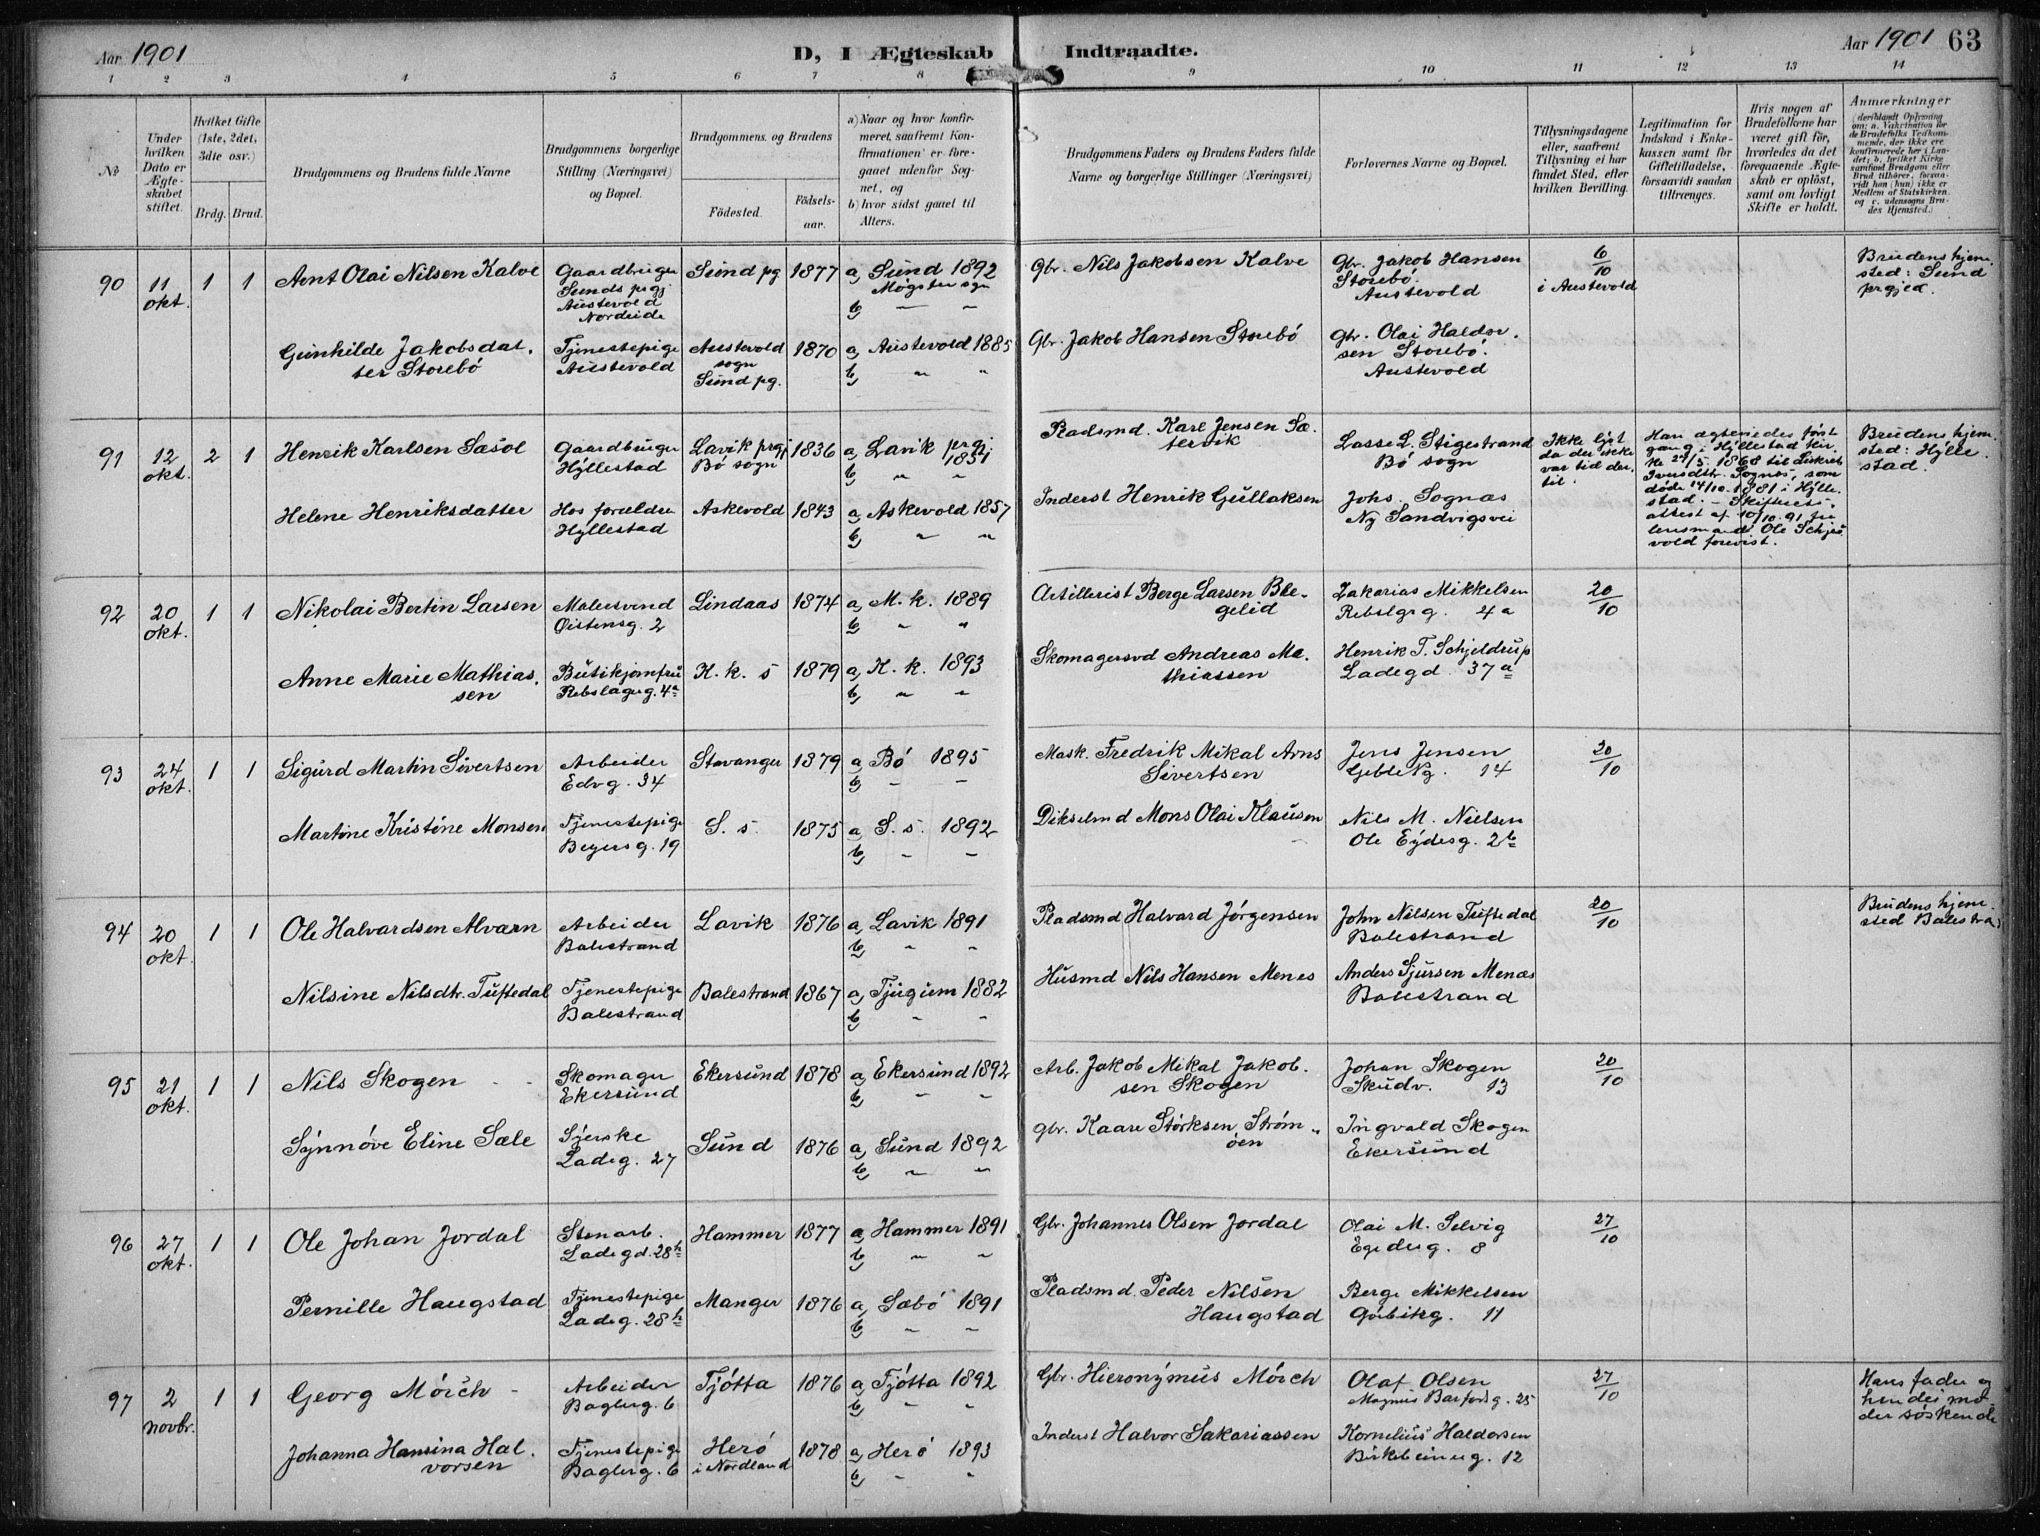 Aar 1901
D, I Ægteskab Indtraadte.
Aar 1901 63
1 2 3 4 5 6 7 8 9 10 11 12 13 14
No
Under hvilken Dato er Ægteskabet stiftet.
Hvilket Gifte (1ste, 2det, 3die osv.)
Brdg. Brud.
Brudgommens og Brudens fulde Navne
Brudgommens borgerlige Stilling (Næringsvei) og Bopæl.
Brudgommens og Brudens
Födested.
Födselsaar.
a) Naar og hvor konfirmeret, saafremt Konfirmationen er foregaaet udenfor Sognet, og
b) hvor sidst gaaet til Alters.
Brudgommens Faders og Brudens Faders fulde Navne og borgerlige Stillinger (Næringsvei)
Forlovernes Navne og Bopæl.
Tillysningsdagene eller, saafremt Tillysning ei har fundet Sted, efter hvilken Bevilling.
Legitimation for Indskud i Enkekassen samt for Giftetilladelse, forsaavidt saadan tiltrænges.
Hvis nogen af Brudefolkene har været gift før, hvorledes da det foregaaende Ægteskab er opløst, samt om lovligt Skifte er holdt.
Anmærkninger
(deriblandt Oplysning om: a. Vakcination for de Brudefolks Vedkommende, der ikke ere konfirmerede her i Landet; b. hvilket Kirkesamfund Brudgom eller Brud tilhører, forsaavidt han (hun) ikke er Medlem af Statskirken, og c. udensogns Brudes Hjemsted.)
90 11 okt. 1 1 Arnt Olai Nilsen Kalve
Gaardbruger Sunds prgj Austevold Nordside
Sund pg 1877 a, Sund 1892 Møgster sgn
b, " "
Gbr. Nils Jakobsen Kalve
Gbr. Jakob Hansen Storebö. Austevold
6/10 i Austevold
Brudens hjemsted: Sund prgjed.
Gunhilde Jakobsdatter Storebö
Tjenestepige Austevold
Austevold sogn Sund pg. 1870 a, Austevold 1885
b, " "
Gbr. Jakob Hansen Storebö
Gbr. Olai Haldorsen Storebö. Austevold
91 12 okt. 2 1 Henrik Karlsen Sæsol
Gaardbruger Hyllestad
Lavik prgj Bö sogn 1836 a, Lavik prgj 1851
b, " "
Pladsmd. Karl Jensen Sætervik
Lasse L. Stigestrand Bö sogn
Ikke lyst da der ikke var tid dertil.
Han ægteviedes först gang i Hyllestad kirke 24/5 1868 til Liskret Iversdtr. Sognes, som döde 14/10 1881 i Hyllestad. Skifteattest af 10/10.91 fra lensmand Ole Schjevold forevist.
Brudens hjemsted: Hyllestad.
Helene Henriksdatter
Hos forældre Hyllestad
Askevold 1843 a, Askevold 1857
b, " "
Inderst Henrik Gullaksen
Johs. Sognæs Ny Sandvigsvei
92 20 okt. 1 1 Nikolai Bertin Larsen
Malersvend Øistensg. 2
Lindaas 1874 a, M. k. 1889
b, " "
Artillerist Berge Larsen Blegelid
Zakarias Mikkelsen Rebslgrg. 4a
20/10
Anne Marie Mathiassen
Butikjomfru Rebslagerg. 4a
K. k. s 1879 a, K. k. 1893
b, " "
Skomagersvd Andreas Mathiassen
Henrik T. Schjeldrup Ladegd. 37a
93 24 okt. 1 1 Sigurd Martin Sivertsen
Arbeider Edvg. 34
Stavanger 1879 a, Bö 1895
b, " "
Mask. Fredrik Mikal Arns Sivertsen
Jens Jensen Gebleng. 14
20/10
Martine Kristine Monsen
Tjenestepige Beyersg. 19
S. s. 1875 a, S. s. 1892
b, " "
Dikselmd Mons Olai Klausen
Nils M. Nielsen Ole Eydesg. 2b
94 20 okt. 1 1 Ole Halvardsen Alværn
Arbeider Balestrand
Lavik 1876 a, Lavik 1891
b, " "
Pladsmd Halvard Jörgensen
John Nilsen Tuftedal Balestrand
20/10
Brudens hjemsted Balestra
Nilsine Nilsdtr. Tuftedal
Tjenestepige Balestrand
Balestrand 1867 a, Tjugum 1882
b, " "
Husmd Nils Hansen Menes
Anders Sjursen Menæs Balestrand
95 21 okt. 1 1 Nils Skogen
Skomager Ekersund
Ekersund 1878 a, Ekersund 1892
b, " "
Arb. Jakob Mikal Jakobsen Skogen
Johan Skogen Skudv. 13
20/10
Synnöve Eline Sæle
Syerske Ladeg. 27
Sund 1876 a, Sund 1892
b, " "
Gbr. Kaare Störksen Strömöen
Ingvald Skogen Ekersund
96 27 okt. 1 1 Ole Johan Jordal
Stenarb. Ladegd. 28h
Hammer 1877 a, Hammer 1891
b, " "
Gbr. Johannes Olsen Jordal
Olai M. Selvig Egederg. 8
27/10
Pernille Haugstad
Tjenestepige Ladeg. 28h
Manger 1876 a, Sæbö 1891
b, " "
Pladsmd. Peder Nilsen Haugstad
Berge Mikkelsen Görbitzg. 11
97 2 novbr. 1 1 Georg Mörch
Arbeider Baglerg. 6
Tjötta 1876 a, Tjötta 1892
b, " "
Gbr. Hieronymus Mörch
Olaf Olsen Magnus Barfodsg. 25
27/10
Hans fader og hendes moder söskende
Johanna Hansina Halvorsen
Tjenestepige Baglerg. 6
Herö i Nordland 1878 a, Herö 1893
b, " "
Inderst Halvor Sakariassen
Kornelius Haldorsen Birkebeinerg. 12